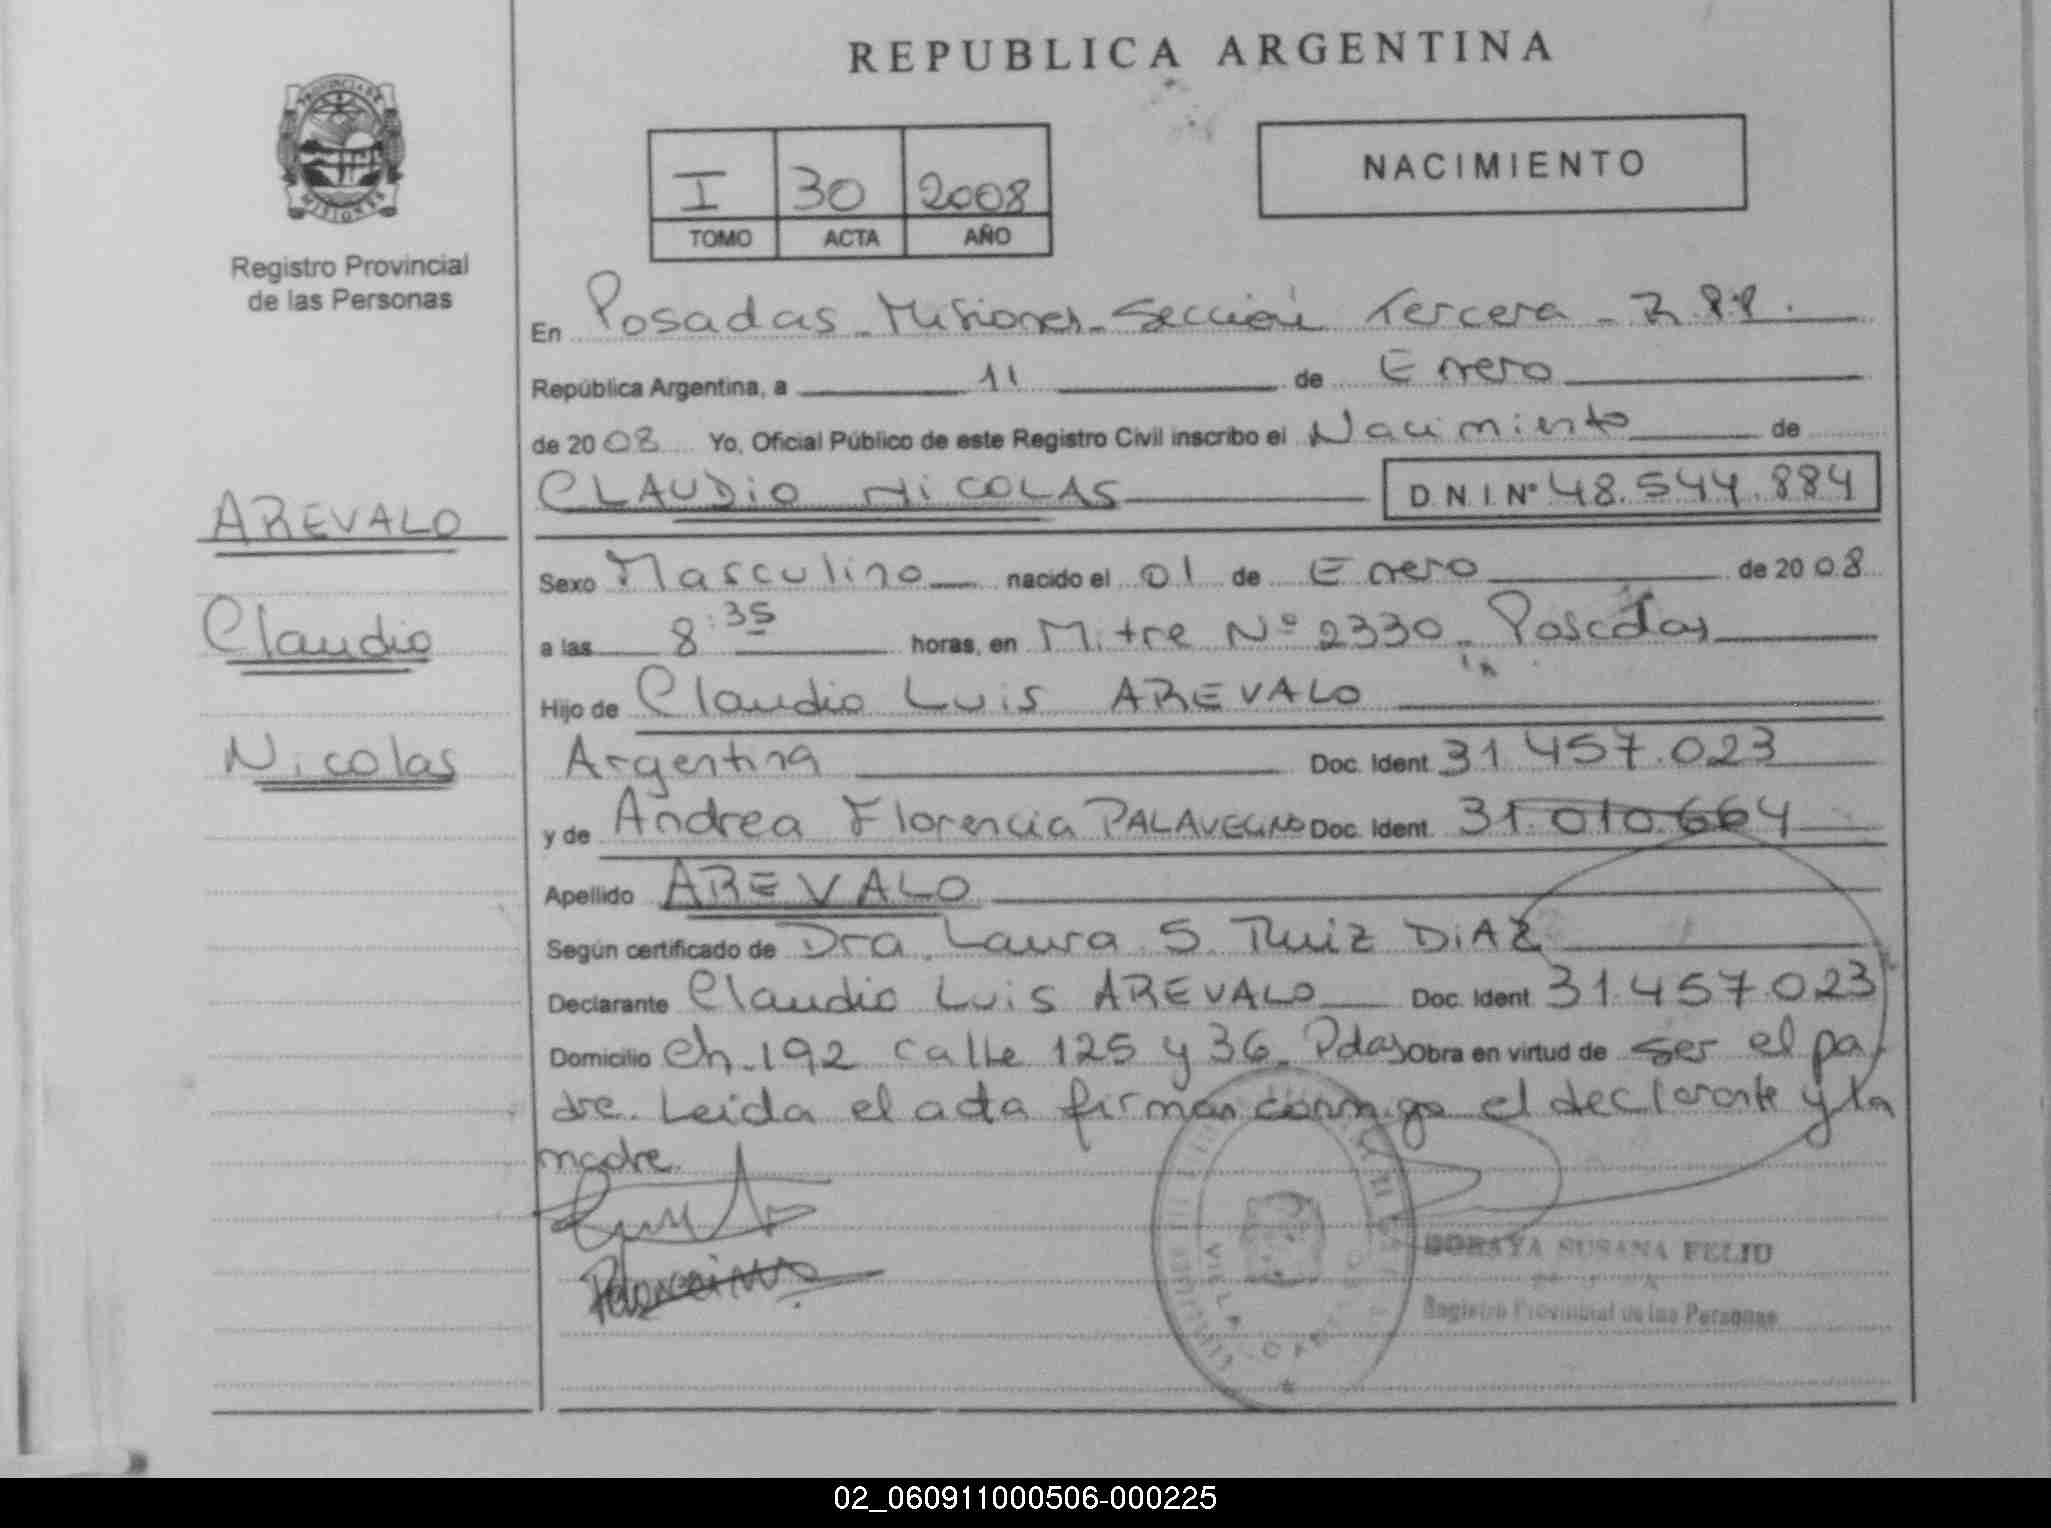 REPUBLICA ARGENTINA
PROVINCIA DE
MISIONES
Registro Provincial
de las Personas
I 30 2008
TOMO ACTA AÑO
NACIMIENTO
En Posadas - Misiones - Sección Tercera - R.P.P.
República Argentina, a 11 de Enero
de 2008 Yo, Oficial Público de este Registro Civil inscribo el Nacimiento de
CLAUDIO NICOLAS D.N.I. Nº 48.544.884
AREVALO
Claudio
Nicolas
Sexo Masculino nacido el 01 de Enero de 2008
a las 8:35 horas, en Mitre Nº 2330 - Posadas
Hijo de Claudio Luis AREVALO
Argentina Doc. Ident 31.457.023
y de Andrea Florencia Doc. Ident. 31.010.664
Apellido AREVALO
Según certificado de Dra. Laura S. Ruiz DIAZ
Declarante Claudio Luis AREVALO Doc. Ident 31.457.023
Domicilio Ch. 192 calle 125 y 36 - Pdas Obra en virtud de ser el pa
dre. Leída el acta firman conmigo el declarante y la
madre.
SORAYA SUSANA FELIU
Registro Provincial de las Personas
02_060911000506-000225